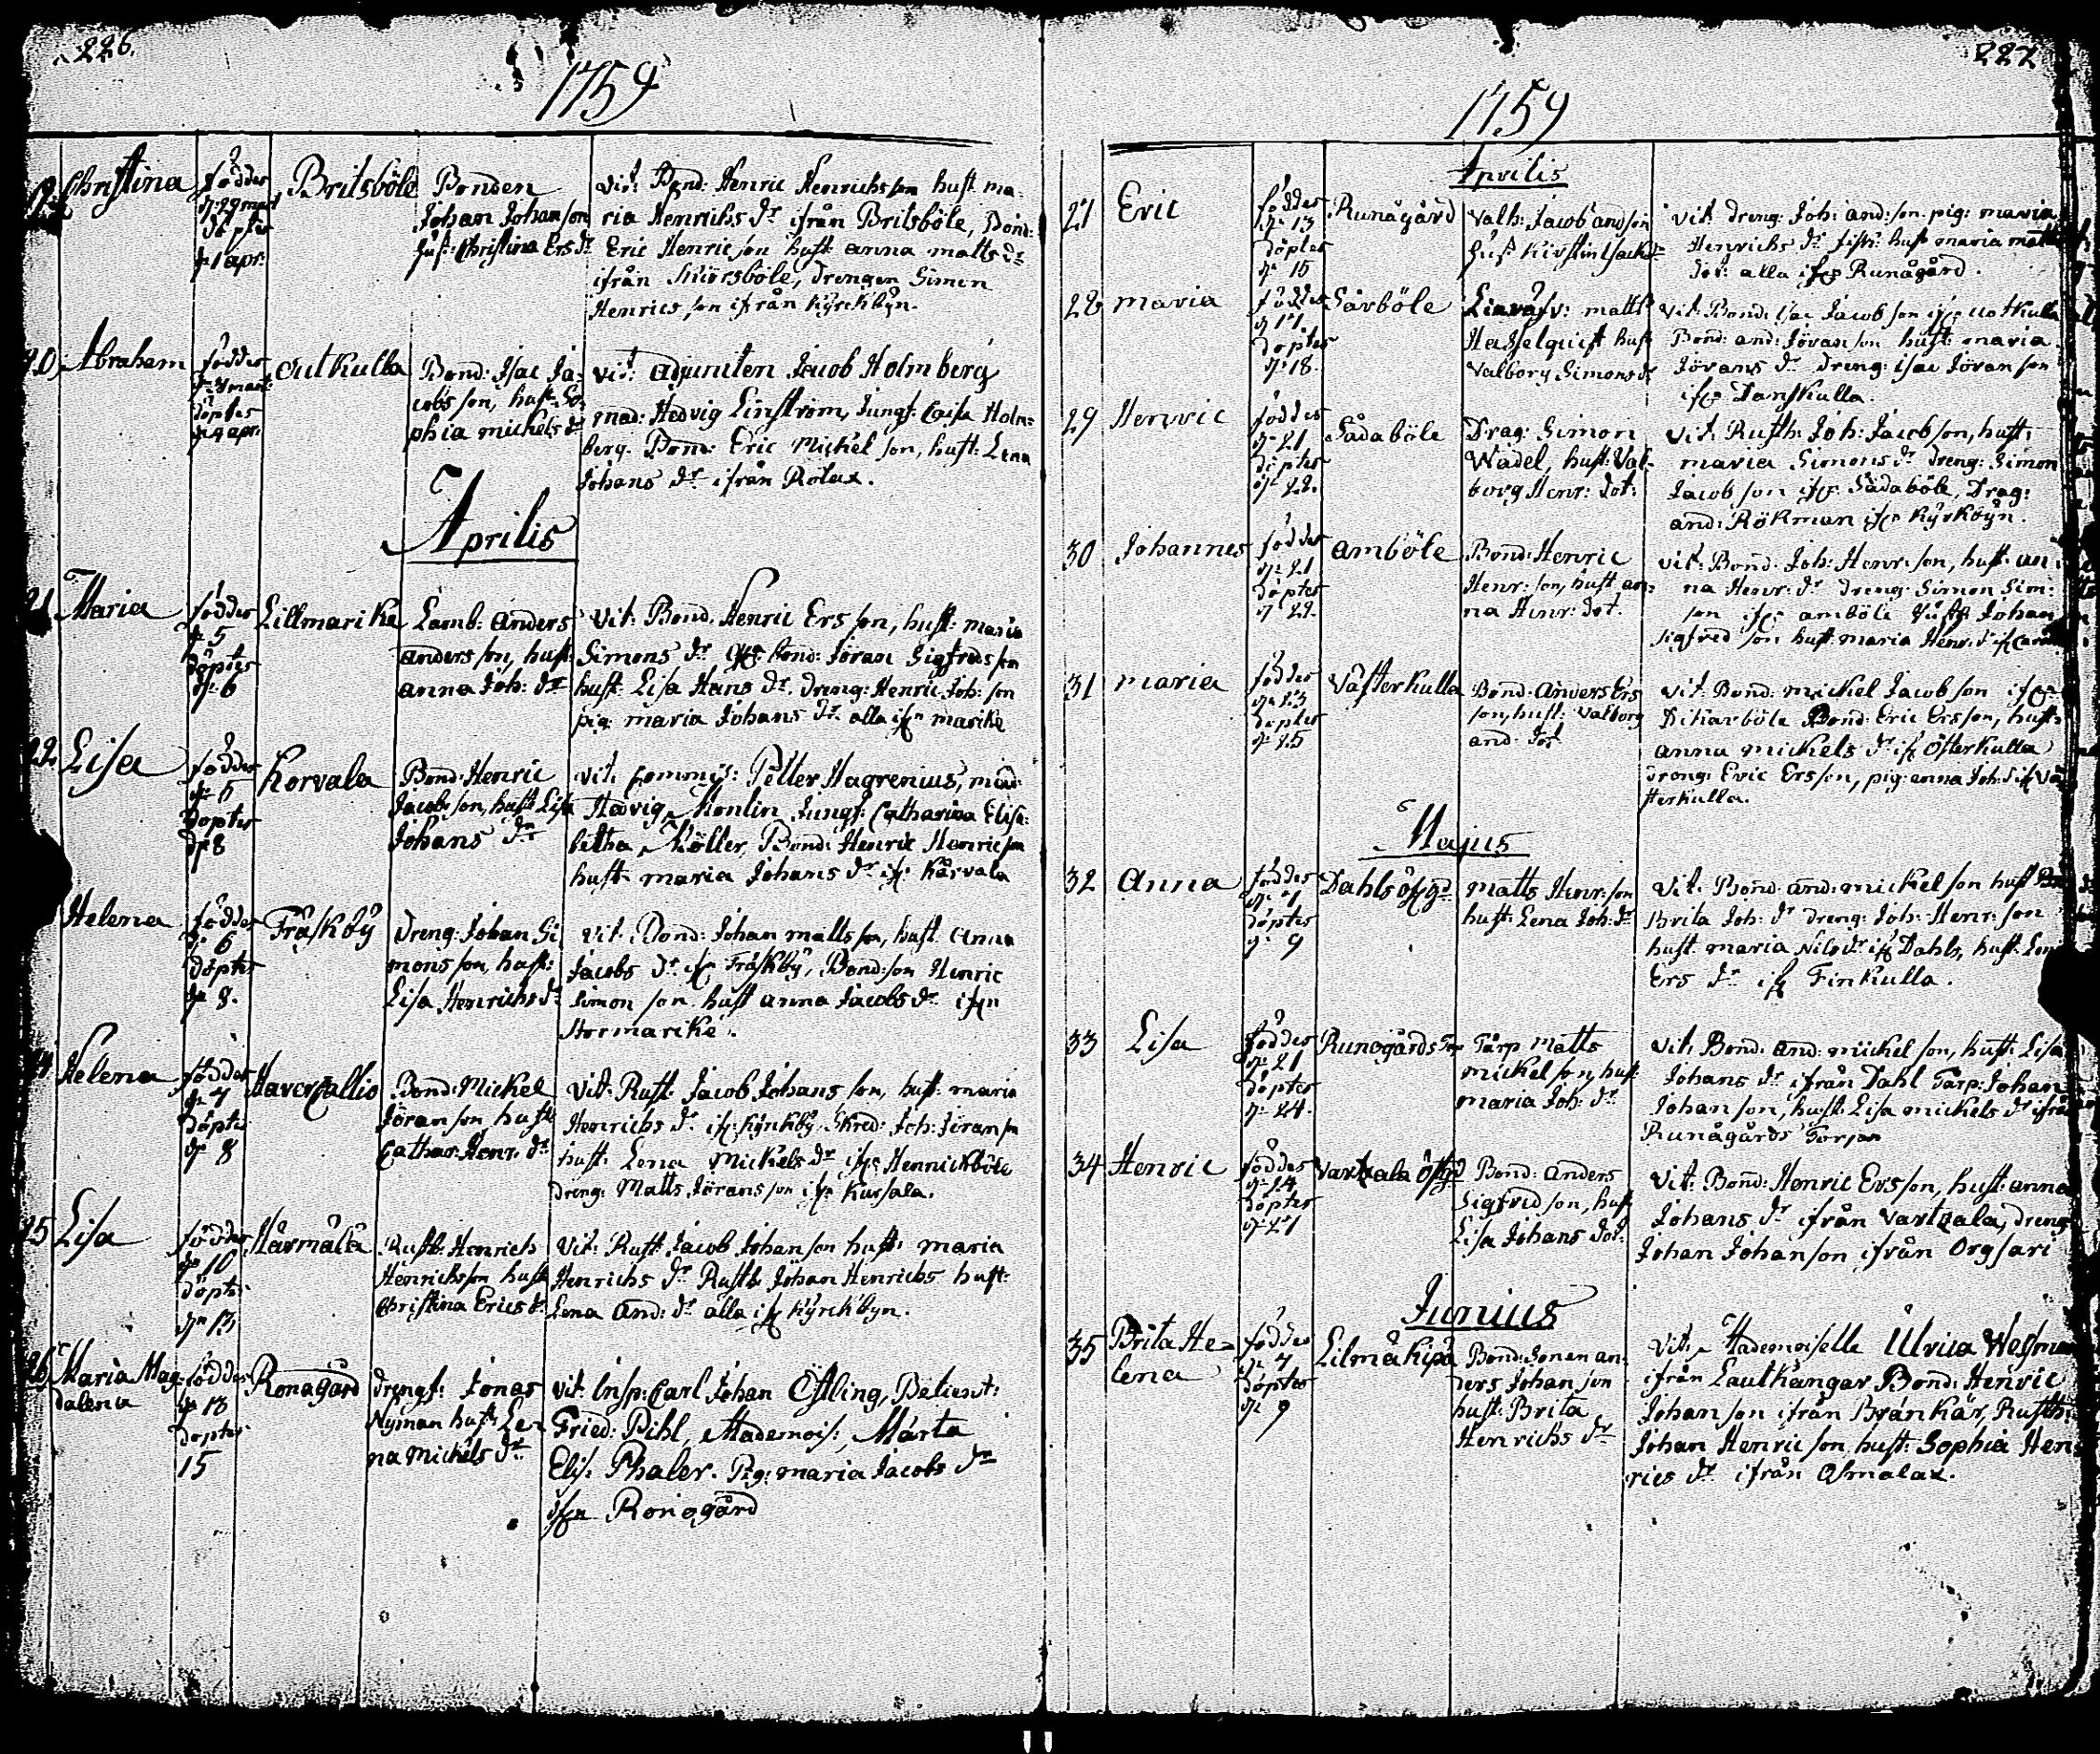 226.
1759
Christina
föddes
d: 29 mart
döptes
d: 1 apr:
Britsböle
Bonden
Johan Johanson
huf: Christina Ers dr
Vit: Bond: Henric Henrichsson hust ma-
ria Henrichs dr ifrån Britsböle, Bond:
Eric Henricson hust anna matts dr
ifrån Skiörsböle, drengen Simon
Henrics son ifrån Kÿrckbÿn.
20
Abraham
föddes
mart:
döptes
d: 4 apr:
Outkulla
Bond: Isac Ja-
cobs son, hust: So-
phia mickels dr
vit: adjuncten Jacob Holmberg
mad: Hedvig Linström, Jungf: Caisa Holm=
berg. Bond: Eric Mickelson, hust: Lena
Johans dr ifrån Rölax.
Aprilis
21
Maria
föddes
d: 5
döptes
d: 6
Lillmarike
Lamb: Anders
anders son, hust:
anna Joh: dr
Vit: Bond: Henric Ers son, hust: maria
Simons dr bond: Jöran Sigfreds son
hust: Lisa Hans dr. dreng: Henric Joh: son
pig: maria Johans dr. alla ifn marike
22
Lisa
föddes
d: 5
döptes
d: 8
Korvala
Bond: Henric
Jacobs son, hust Lisa
Johans dr
Vit: Commis: Petter Hagrenius, mad:
Hedvig Monlin, Jungf: Catharina Elisa-
betha Möller, Bond: Henric Henricson
hust: maria Johans dr ifr Kårvala
Helena
föddes
d: 6
döptes
d: 8.
Fräskbÿ
Dreng: Johan Si-
mons son, hust:
Lisa Henrichs dr
Vit: Bond: Johan matts son, hust: Anna
Jacobs dr ifn Fräskbÿ, Bond: son Henric
Simon son hust anna Jacobs dr ifrn
Stormarike.
Helena
föddes
d: 7
döptes
d: 8
Havercallio
Bond: Mickel
Jöran son, hust
Cathar: Henr: dr
Vit: Rust: Jacob Johans son, hust: maria
Henrichs dr ifr Kÿrkbÿ, Skred: Joh: Jöranson
hust: Lena Mickels dr ifrn Hennickböle
Dreng: Matts Jöransson ifrn Kursala.
25
Lisa
föddes
d: 10
döptes
d: 13
Hårmålä
Rust: Henrich
Henrichsson hust
Christina Erics dr
Vit: Rust: Jacob Johanson hust: maria
Henrichs dr Rusth: Johan Henrichs hust:
Lena And: dr alla ifr Kÿrckbyn.
26
Maria Mag-
dalena
föddes
d: 13
döptes
15
Ronagård
drengf: Jonas
Nÿman hust: Le-
na Mickels dr
Vit: Insp: Carl Johan Öfling, Betient:
Fried: Pihl, Mademois: Märta
Elis: Phaler. Pig: maria Jacobs dr
ifrn Ronogård
227
1759
Aprilis
27
Eric
föddes
d: 13
döptes
d: 15
Runågård
Valh: Jacob andson
Huf Kirstin Isacks
Vit: dreng: Joh: and: son. pig: maria
Henrichs dr fistr: hust maria matts
dot: alla ifrn Runågård.
28
maria
föddes
d: 17
döptes
d: 18.
Sävböle
matts
Hasselquist hust
Valborg Simons dr
Vit: Bond: Isac Jacobson ifrn Uotkulla
Bond: and: Jöran son hust: maria
Jörans dr dreng: isac Jöranson
ifrn Danskulla.
29
Henric
föddes
d: 21
döptes
d: 22.
Sädaböle
Drag: Simon
Wädel, hust: Val-
borg Henr: dot:
Vit: Rusth: Joh: Jacobson, hust:
maria Simons dr dreng: Simon
Jacobson ifrn Sädaböle, Drag:
and: Rökman ifrn Kÿrkbÿn.
30
Johannes
föddes
d: 21
döptes
d: 22.
amböle
Bond: Henric
Henr: son, hust an-
na Henr: dot.
Vit: Bond: Joh: Henr: son, hust: an-
na Henr: dr dreng: Simon Sim:
son ifrn amböle Johan
Sigfredson hust: maria Henr: dr
31
maria
föddes
d: 23
döptes
d: 25
Västerkulla
Bond: Anders Ers
son, hust: Valborg
and: dot
Vit: Bond: mickel Jacobson ifrn
Dikarböle Bond: Eric Ersson, hust:
anna mickels dr ifr Österkulla
dreng: Eric Ersson, pig: anna Joh: d ifr Vä-
sterkulla.
Majus
32
Anna
föddes
d: 7
döptes
d: 9
Dahls öfgd
matts Henr: son
hust: Lena Joh: dr
Vit: Bond: And: mickelson hust
Brita Joh: dr dreng: Joh: Henr: son
hust maria Nils dr ifr Dahls, hust: Lena
Ers dr ifr Finkulla.
33
Lisa
föddes
d: 21
döptes
d: 24.
Runogårds Tor
Tårp matts
mickelson, hust:
maria Joh: dr
Vit: Bond: And: mickelson, hust: Lisa
Johans dr ifrån Dahl Tårp: Johan
Johanson, hust: Lisa mickels dr ifrån
Runågårds Torpan
34
Henric
föddes
d: 24
döptes
d: 27
Vartsala Öfgd
Bond: anders
Sigfredson, hust
Lisa Johans dot.
Vit: Bond: Henric Ersson, hust: anna
Johans dr ifrån Vartsala, dreng
Johan Johanson ifrån Orgsari
Junius
35
Brita He=
lena
föddes
d: 7
döptes
d: 9
Lilmåkipä
Bond: sonen an-
ders Johanson
hust: Brita
Henrichs dr
Vit: Mademoiselle Ulrica
ifrån Lautkangar Bond: Henric
Johanson ifrån Brankär, Rusth:
Johan Henricson, hust: Sophia Hen-
rics dr ifrån Osmalax.